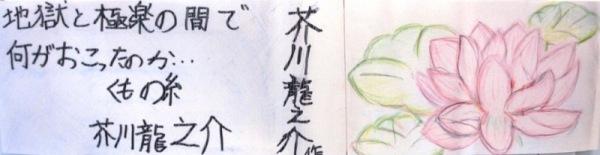 地獄と極楽の間で
何がおこったのか…
くもの糸
芥川龍之介
芥川龍之介作